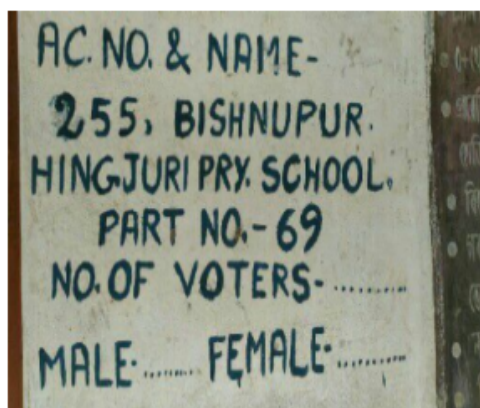 AC. NO. & NAME-
255, BISHNUPUR.
HINGJURI PRY. SCHOOL.
PART NO.-69
NO. OF VOTERS- ..........
MALE- ....... FEMALE- ..........